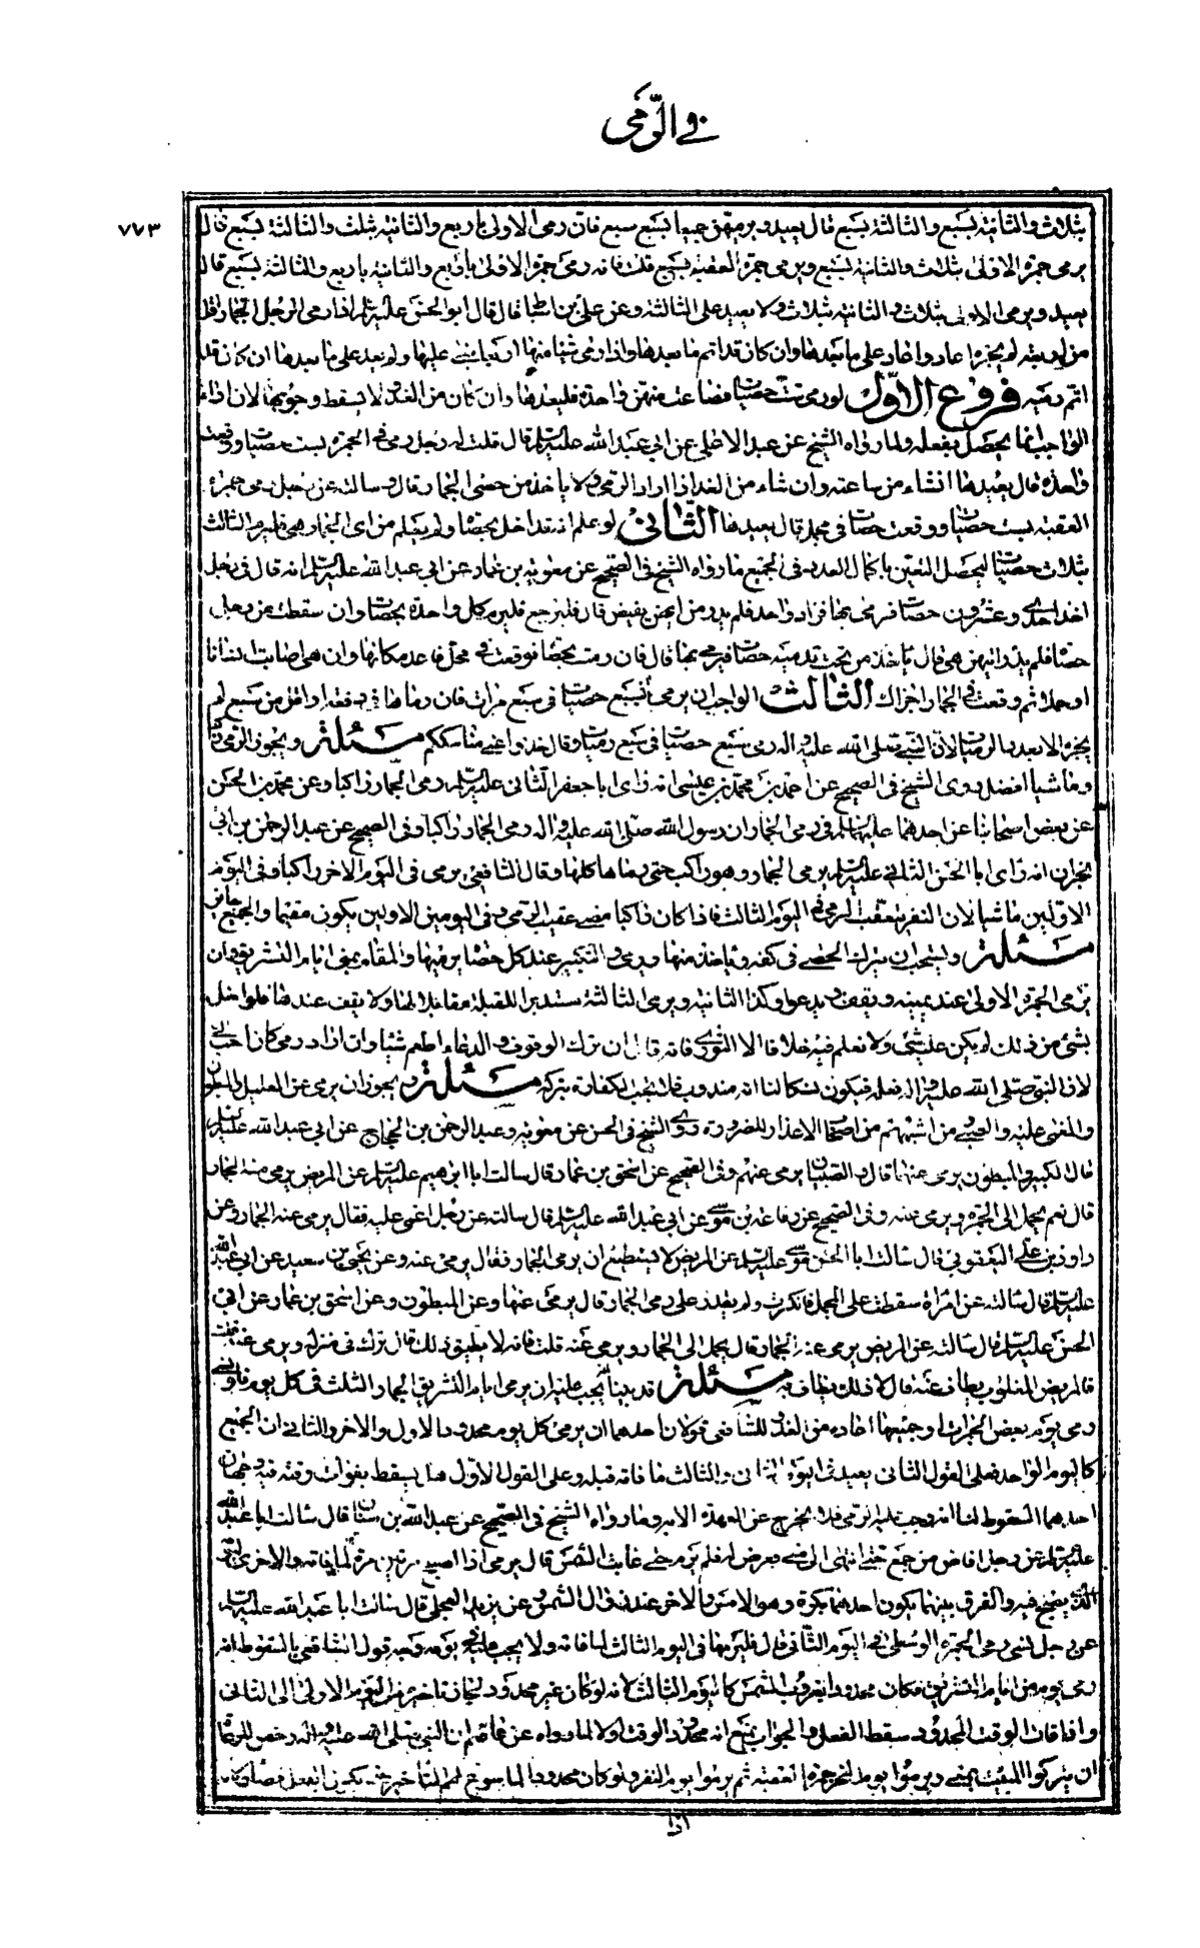 في الرمي
٧٧٣
بثلاث والثانية بسبع والثالثة بسبع قال يعيد ويرميهن جميعا بسبع سبع فان رمى الاولى باربع والثانية بثلث والثالثة بسبع قال
يرمي جمرة الاولى بثلاث والثانية بسبع ويرمي جمرة العقبة بسبع قلت فانه رمى جمرة الاولى باربع والثانية باربع والثالثة بسبع قال
يعيد ويرمي الاولى بثلاث والثانية بثلاث ولا يعيد على الثالثة وعن علي بن اسباط قال قال ابو الحسن عليه السلم اذا رمى الرجل الجمار اقل
من اربعة لم يجزه اعاد واعاد على ما بعدها وان كان قد اتم ما بعدها واذا رمى شيئا منها اربعا بنى عليها ولم يعد على ما بعدها ان كان قد
اتم رميه فروع الاول لو رمى ست حصيات وضاعت منهن واحدة فليعدها وان كان من الغد ولا يسقط وجوبها لان اداء
الواجب انما يحصل بفعله ولما رواه الشيخ عن عبد الاعلى عن ابي عبد الله عليه السلم قال قلت له رجل رمى الجمرة بست حصيات ووقعت
واحدة قال يعيدها ان شاء من ساعته وان شاء من الغد اذا اراد الرمي ولا ياخذ من حصى الجمار قال وسالته عن رجل رمى جمرة
العقبة بست حصيات ووقعت حصاة في محمل قال يعيدها الثاني لو علم انه قد اخل بحصاة ولم يعلم من اي الجمار هي فليرم الثالث
بثلاث حصيات ليحصل اليقين باكمال العدد في الجميع ما رواه الشيخ في الصحيح عن معوية بن عمار عن ابي عبد الله عليه السلم انه قال في رجل
اخذ احدى وعشرين حصاة فرمى بها فزاد واحد فلم يدر من ايهن نقص قال فليرجع فليرم كل واحدة بحصاة وان سقطت من رجل
حصاة فلم يدر ايهن هي قال ياخذ من تحت قدميه حصاة فيرمي بها قال فان رمت بحصاة فوقعت في محمل فاعد مكانها وان هي اصابت انسانا
او جملا ثم وقعت في الجمار اجزاك الثالث الواجب ان يرمي بسبع حصيات في سبع مرات فان رماها في دفعة او اقل من سبع لم
يجزه الا بعدد الرميات لان النبي صلى الله عليه واله رمى بسبع حصيات في سبع رميات وقال خذوا عني مناسككم مسئلة ويجوز الرمي راكبا
وماشيا افضل روى الشيخ في الصحيح عن احمد بن محمد بن عيسى انه راى ابا جعفر الثاني عليه السلم رمى الجمار راكبا وعن محمد بن الحسن
عن بعض اصحابنا عن احدهما عليهما السلم في رمي الجمار ان رسول الله صلى الله عليه واله رمى الجمار راكبا وفي الصحيح عن عبد الرحمن بن ابي
نجران انه راى ابا الحسن الثاني عليه السلم يرمي الجمار وهو راكب حتى رماها كلها وقال الشافعي يرمي في اليوم الاخر راكبا وفي اليوم
الاولين ماشيا لان النفر يتعقب الرمي في اليوم الثالث فاذا كان راكبا مضى عقيب الرمي وفي اليومين الاولين يكون مقيما والجميع جائز
مسئلة ويستحب ان يترك الحصى في كفه وياخذ منها ويرمي والتكبير عند كل حصاة يرميها والمقام بمنى ايام التشريق وان
يرمي الجمرة الاولى عند يمينه ويقف ويدعو وكذا الثانية ويرمي الثالثة مستدبرا للقبلة مقابلا لها ولا يقف عندها فلو اخل
بشئ من ذلك لم يكن عليه شئ ولا نعلم فيه خلافا الا الثوري فانه قال ان ترك الوقوف والدعاء اطعم شيئا وان اراد رمى كان احب الي
لان النبي صلى الله عليه واله فعله فيكون نسكا لنا انه مندوب فلا تجب الكفارة بتركه مسئلة ويجوز ان يرمي عن العليل والمبطون
والمغمى عليه والصبي من اشبههم من اصحاب الاعذار للضرورة روى الشيخ في الحسن عن معوية وعبد الرحمن بن الحجاج عن ابي عبد الله عليه السلم
قال الكبير والمبطون يرمى عنهما قال والصبيان يرمى عنهم وفي الصحيح عن اسحق بن عمار قال سالت ابا ابرهيم عليه السلم عن المريض يرمي عنه الجمار
قال نعم يحمل الى الجمرة ويرمى عنه وفي الصحيح عن رفاعة بن موسى عن ابي عبد الله عليه السلم قال سالته عن رجل اغمي عليه فقال يرمى عنه الجمار وعن
داود بن علي اليعقوبي قال سالت ابا الحسن موسى عليه السلم عن المريض لا يستطيع ان يرمي الجمار فقال يرمى عنه وعن يحيى بن سعيد عن ابي عبد الله
عليه السلم قال سالته عن امراة سقطت عن المحمل فانكسرت ولم يقدر على رمي الجمار قال يرمى عنها وعن المبطون وعن اسحق بن عمار عن ابي
الحسن عليه السلم قال سالته عن المريض يرمى عنه الجمار قال يحمل الى الجمار ويرمى عنه قلت فانه لا يطيق ذلك قال يترك في منزله ويرمى عنه قلت
فالمريض المغلوب يطاف عنه قال لا ذلك يطاف به مسئلة قد بينا انه يجب عليه ان يرمي ايام التشريق الجمار الثلث في كل يوم فلو نسي
رمي يوم بعض الجمرات او جميعها اعاده من الغد للشافعي قولان احدهما ان يرمي كل يوم محدود الاول والاخر والثاني ان الجميع
كاليوم الواحد فعلى القول الثاني يعيد في اليوم الثاني والثالث ما فاته قبله وعلى القول الاول هل يسقط بفوات وقته فيه وجهان
احدهما السقوط لنا انه وجب عليه الرمي فلا يخرج عن العهدة الا به وما رواه الشيخ في الصحيح عن عبد الله بن سنان قال سالت ابا عبد الله
عليه السلم عن رجل افاض من جمع حتى انتهى الى منى فعرض له فلم يرم حتى غابت الشمس قال يرمي اذا اصبح مرتين مرة لما فاته والاخرى ليومه
الذي يصبح فيه والفرق بينهما يكون احدهما بكرة وهو الامس والاخر عند زوال الشمس وعن بريد العجلي قال سالت ابا عبد الله عليه السلم
عن رجل نسي رمي الجمرة الوسطى في اليوم الثاني قال فليرمها في اليوم الثالث لما فاته ولا يجب عليه في يومه وجه قول الشافعي بالسقوط انه
رمي يوم من ايام التشريق فكان محدودا بغروب الشمس كاليوم الثالث لانه لو كان غير محدود لجاز تاخير رمي اليوم الاول الى الثاني
واذا فات الوقت المحدود سقط الفعل والجواب يمنع انه محدود الوقت اولا لما رواه عن عاصم ان النبي صلى الله عليه واله رخص للرعاة
ان يتركوا المبيت بمنى ويرموا يوم النحر جمرة العقبة ثم يرموا يوم النفر ولو كان محدودا لما سوغ لهم التاخير يكون الفعل قضاء وكان
اذا